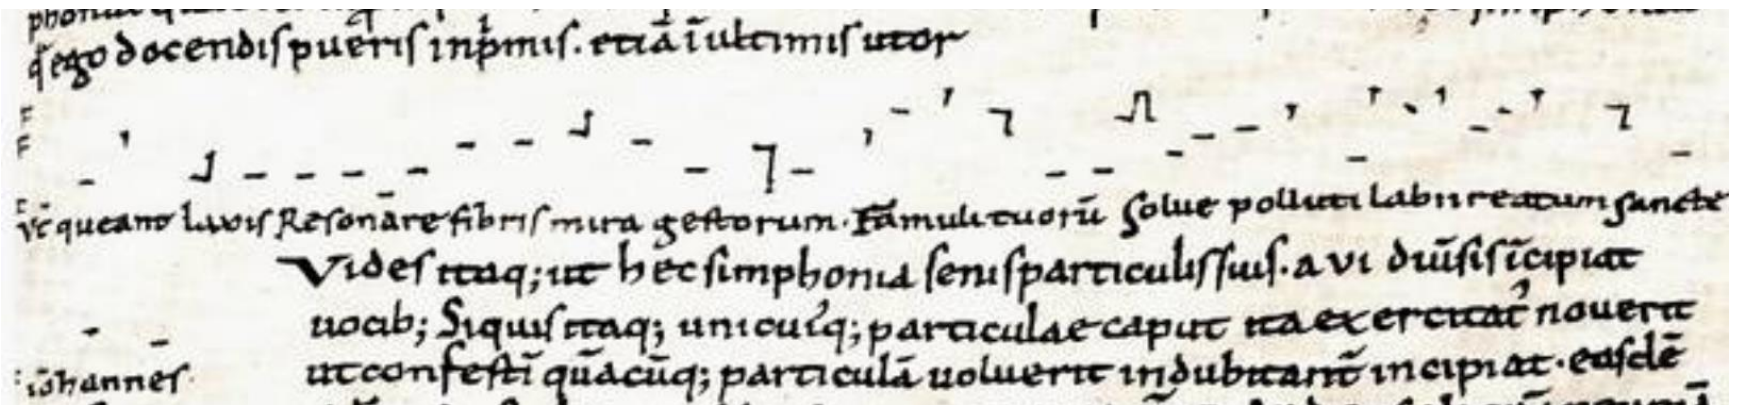 q̄ ego docendis pueris inp̄mis. etiā ī ultimis utor
Vt queant laxis Resonare fibris mira gestorum. Famuli tuorū Solue polluti labii reatum sancte
Vides itaq; ut hec simphonia senis particulis suis. a vi diūsis īcipiat
uocib; Siquis itaq; unicuiq; particulae caput ita exercitat̄ nouerit
iohannes.
ut confestī quācūq; particulā uoluerit indubitant̄ incipiat. easdē